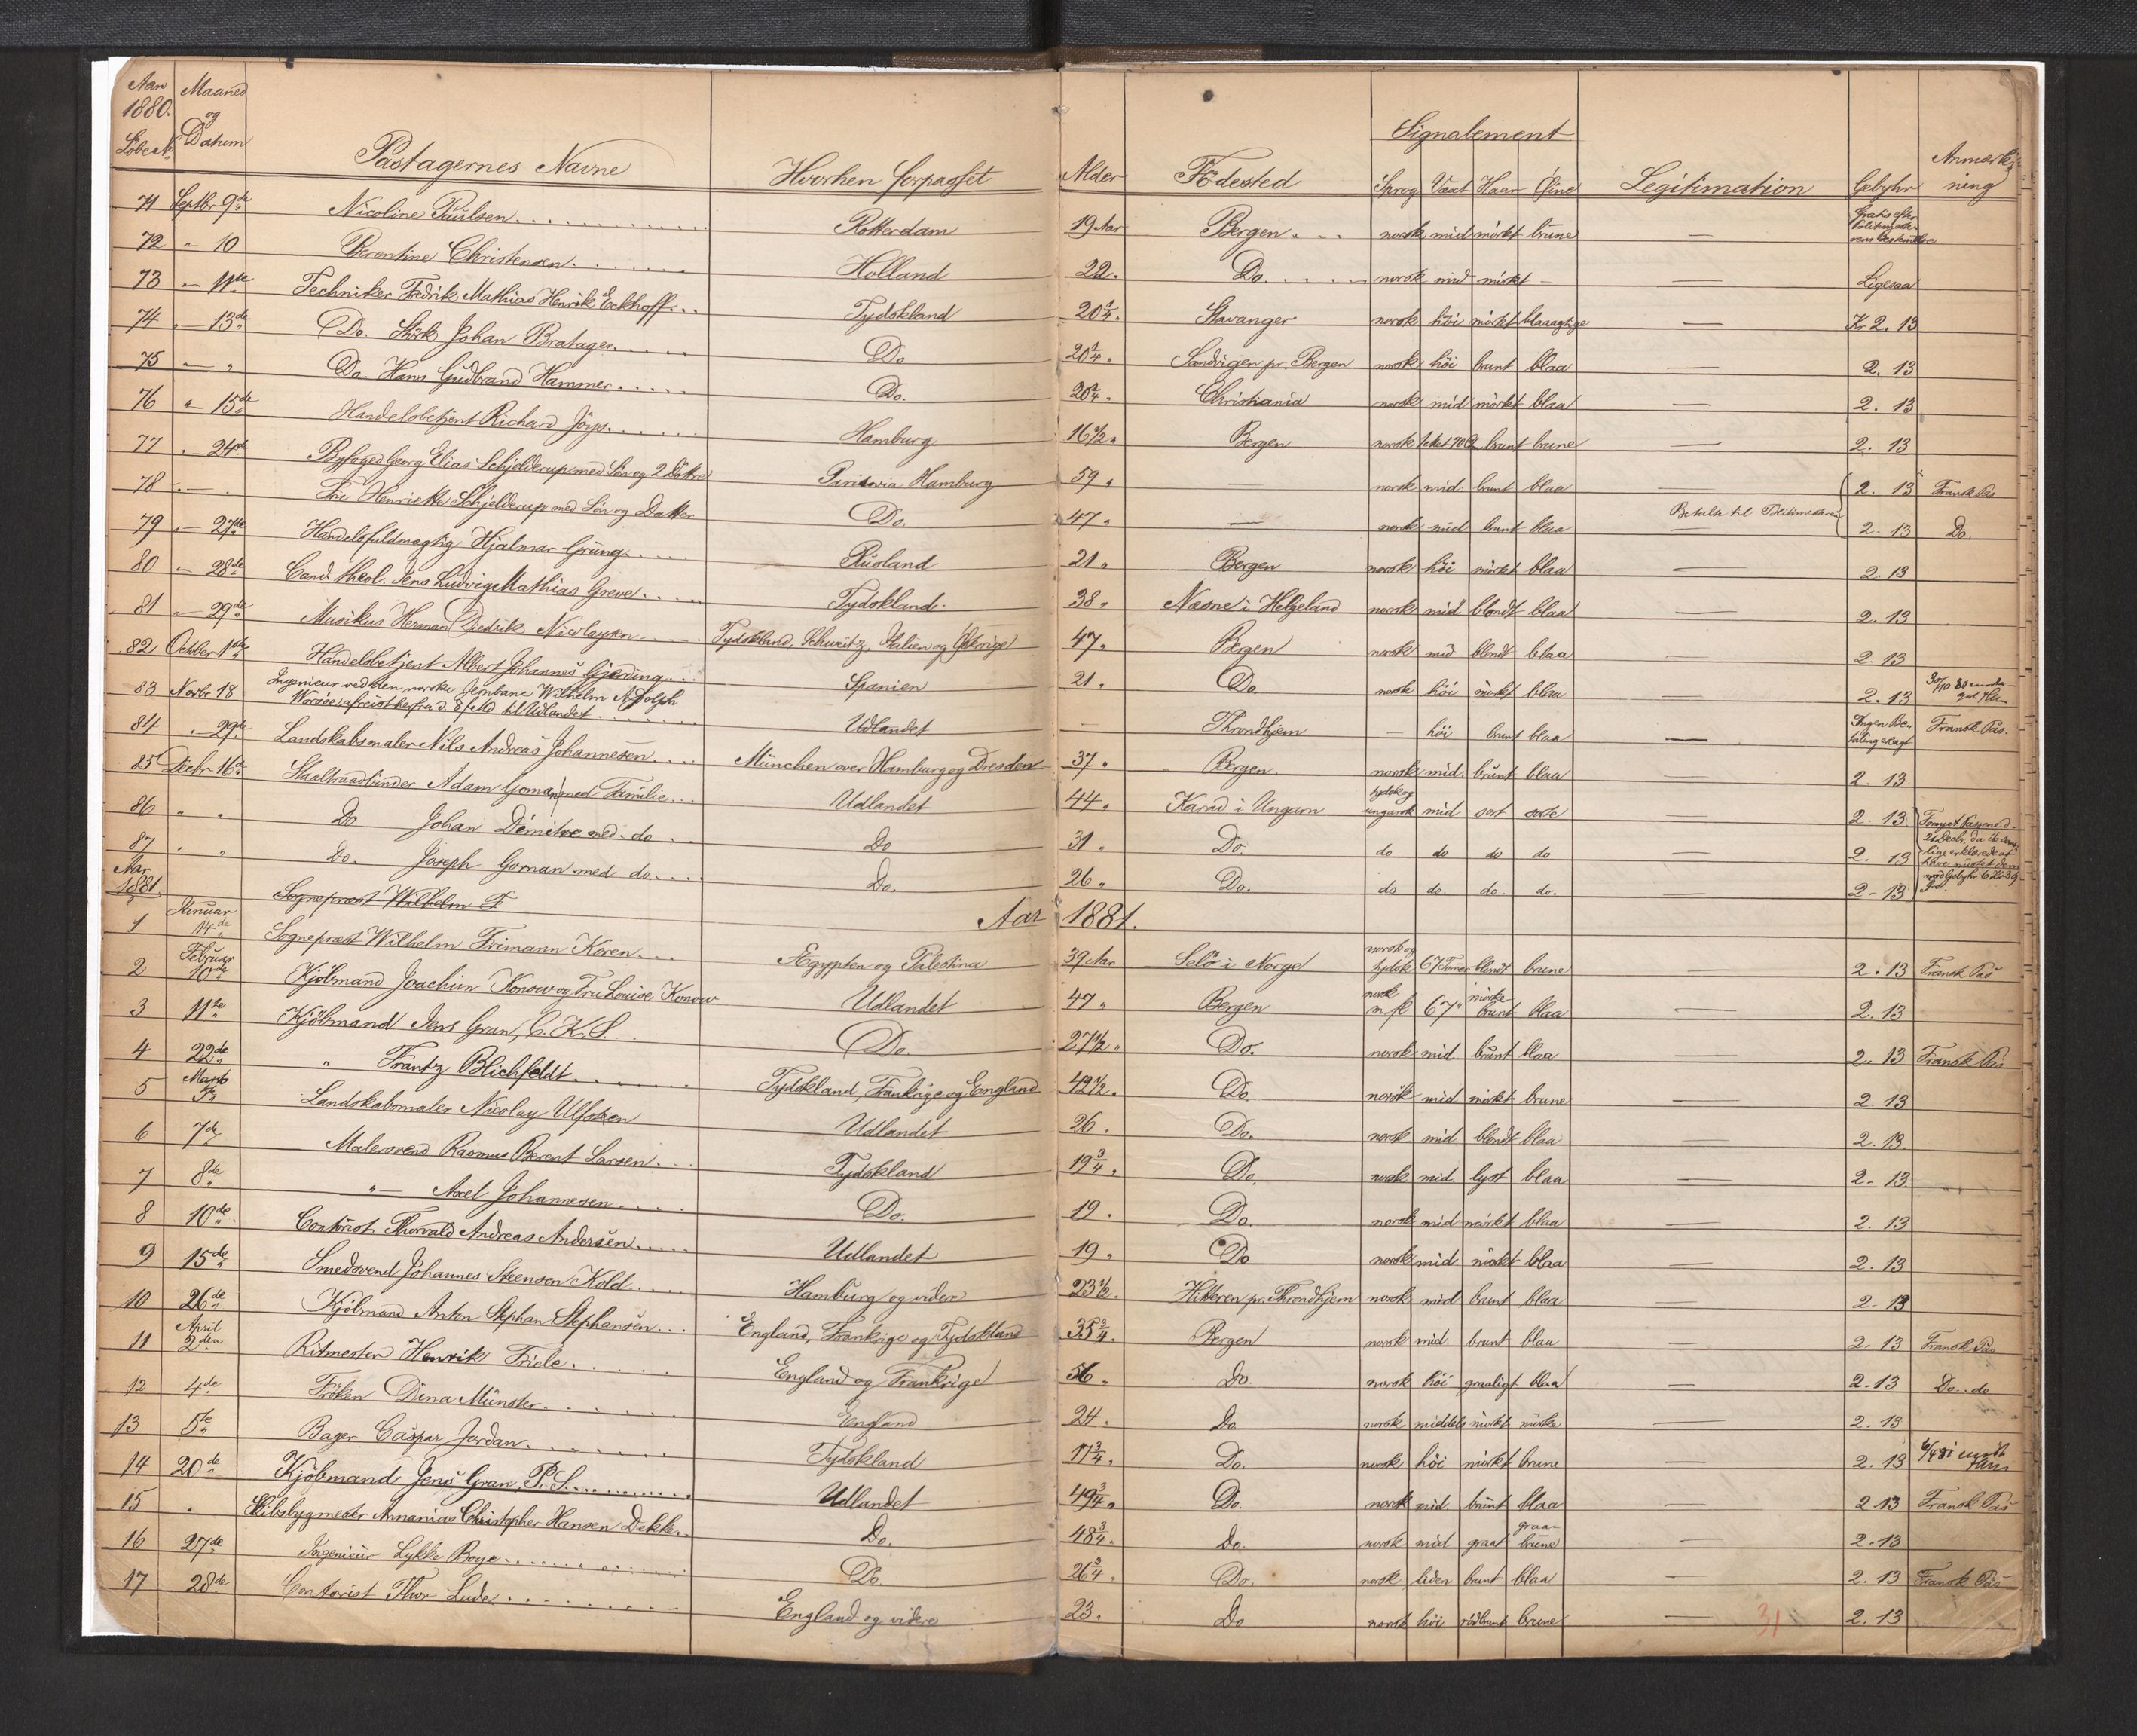 Aar 1880. Löbe № | Maaned og Datum | Pastagernes Navne | Hvorhen forpasset | Alder | Födested | Signalement: Sprog | Vext | Haar | Öine | Legitimation | Gebyhr | Anmærkning
71 Septbr 9de Nicoline Paulsen Rotterdam 19 Aar Bergen norsk mid mörkt brune — Gratis efter
72 " 10 Berentine Christensen Holland 22. Do. norsk mid mörkt — — Ligesaa
73 " 11te Techniker Fredrik Mathias Henrik Eckhoff Tydskland 20¼. Stavanger norsk höi mörkt blaaagtige — Kr 2. 13
74 " 13de Do. Johan Bratager Do 20¼. Sandvigen pr. Bergen norsk höi brunt blaa — 2. 13
75 " " Do. Hans Gudbrand Hammer Do. 20¼. Christiania norsk mid mörkt blaa — 2. 13
76 " 15de Handelsbetjent Richard Jörgs. Hamburg 16½. Bergen norsk brunt brune — 2. 13
77 " 24de Byfoged Georg Elias Schjelderup med Sön og 2 Döttre Paris via Hamburg 59. — norsk mid. brunt blaa — 2. 13 Fransk Pas
78 " — Fru Henriette Schjelderup med Sön og Datter Do. 47. — norsk mid brunt blaa Betalt til Politimesteren 2. 13 Do.
79 " 27de Handelsfuldmægtig Hjalmar Grung. Rusland 21. Bergen norsk höi mörkt blaa — 2. 13
80 " 28de Cand. theol. Jens Ludvig Mathias Greve Tydskland. 38. Næsne i Helgeland norsk mid blondt blaa — 2. 13
81 " 29de Musikus Herman Diedrik Nicolaysen Tydskland, Schweitz, Italien og Östrige 47. Bergen norsk mid blondt blaa — 2. 13
82 October 1ste Handelsbetjent Albert Johannes Gjerding Spanien 21. Do. norsk höi mörkt blaa — 2. 13
83 Novbr 18 Ingenieur ved den norske Jernbane Wilhelm Adolph
afreist herfra d 8 Md til Udlandet Udlandet — Throndhjem — höi brunt blaa — Ingen Betaling erlagt Fransk Pas.
84 " 29de Landskabsmaler Nils Andreas Johannesen München over Hamburg og Dresden 37. Bergen norsk mid. brunt blaa — 2. 13
85 Decbr 16de Staaltraadbinder Adam Goman med Familie Udlandet 44. Karad i Ungarn tydsk og ungarsk mid sort sorte — 2. 13
86 " " Do Johan Démitre med do Do 31. Do. do do do do — 2. 13
87 " " Do. Joseph Goman med do. Do. 26. Do. do do. do. do. — 2. 13
Aar 1881 Sognepræst Wilhelm F Aar 1881.
1 Januar 14de Sognepræst Wilhelm Frimann Koren Ægypten og Palestina 39 Aar Selö i Norge norsk og tydsk 67 Tomer blondt brune — 2. 13 Fransk Pas
2 Februar 10de Kjöbmand Joachim Konow og Fru Louise Konow Udlandet 47. Bergen norsk 67" mörke brunt blaa — 2. 13
3 11te Kjöbmand Jens Gran, C. K. S. Do. 27½. Do. norsk mid. brunt blaa — 2. 13 Fransk Pas
4 22de " Frantz Blichfeldt Tydskland, Frankrige og England 42½. Do. norsk mid mörkt brune — 2. 13
5 Marts Landskabsmaler Nicolay Ulfsten Udlandet 26. Do. norsk mid blondt blaa — 2. 13
6 7de Malersvend Rasmus Berent Larsen Tydskland 19¾. Do. norsk mid. lyst blaa — 2. 13
7 8de " — Axel Johannesen Do. 19. Do. norsk mid mörkt blaa — 2. 13
8 10de Contorist Thorvald Andreas Andersen Udlandet 19. Do norsk mid. mörkt blaa — 2. 13
9 15de Smedsvend Johannes Steenson Kold Hamburg og videre 23½. Hitteren pr. Throndhjem norsk mid brunt blaa — 2. 13
10 26de Kjöbmand Anton Stephan Stephansen England, Frankrige og Tydskland 35¾. Bergen norsk mid. brunt blaa — 2. 13 Fransk Pas
11 April 2den Ritmester Henrik Friele England og Frankrige 56. Do. norsk höi graaligt blaa — 2. 13 Do. do
12 4de Fröken Dina Münster England 24. Do. norsk middels mörkt mörke — 2. 13
13 5te Bager Caspar Jordan Tydskland 17¾. Do. norsk höi mörkt brune — 2. 13
14 20de Kjöbmand Jens Gran, P. S. Udlandet 49¾. Do. norsk mid. brunt blaa — 2 13 Fransk Pas
15 " Skibsbygmester Annanias Christopher Hansen Dekke Do. 48¾. Do. norsk mid graat graa brune — 2. 13
16 27de Ingenieur Lykke Boye Do. 26¾. Do. norsk liden brunt blaa — 2. 13 Fransk Pas
17 28de Contorist Thor Lude England og videre 23. Do norsk höi rödbrunt brune — 2. 13
31